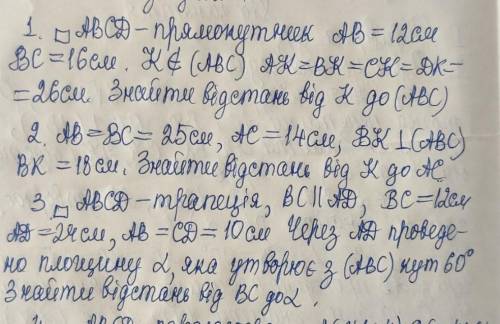 1. □ ABCD – прямокутник AB = 12см
BC = 16см. K ∉ (ABC) AK = BK = CK = DK =
= 26см. Знайти відстань від K до (ABC)
2. AB = BC = 25см, AC = 14см, BK ⊥ (ABC)
BK = 18см. Знайти відстань від K до AC
3 □ ABCD – трапеція, BC || AD, BC = 12см
AD = 24см, AB = CD = 10см Через AD проведе-
но площину α, яка утворює з (ABC) кут 60°
Знайти відстань від BC до α.